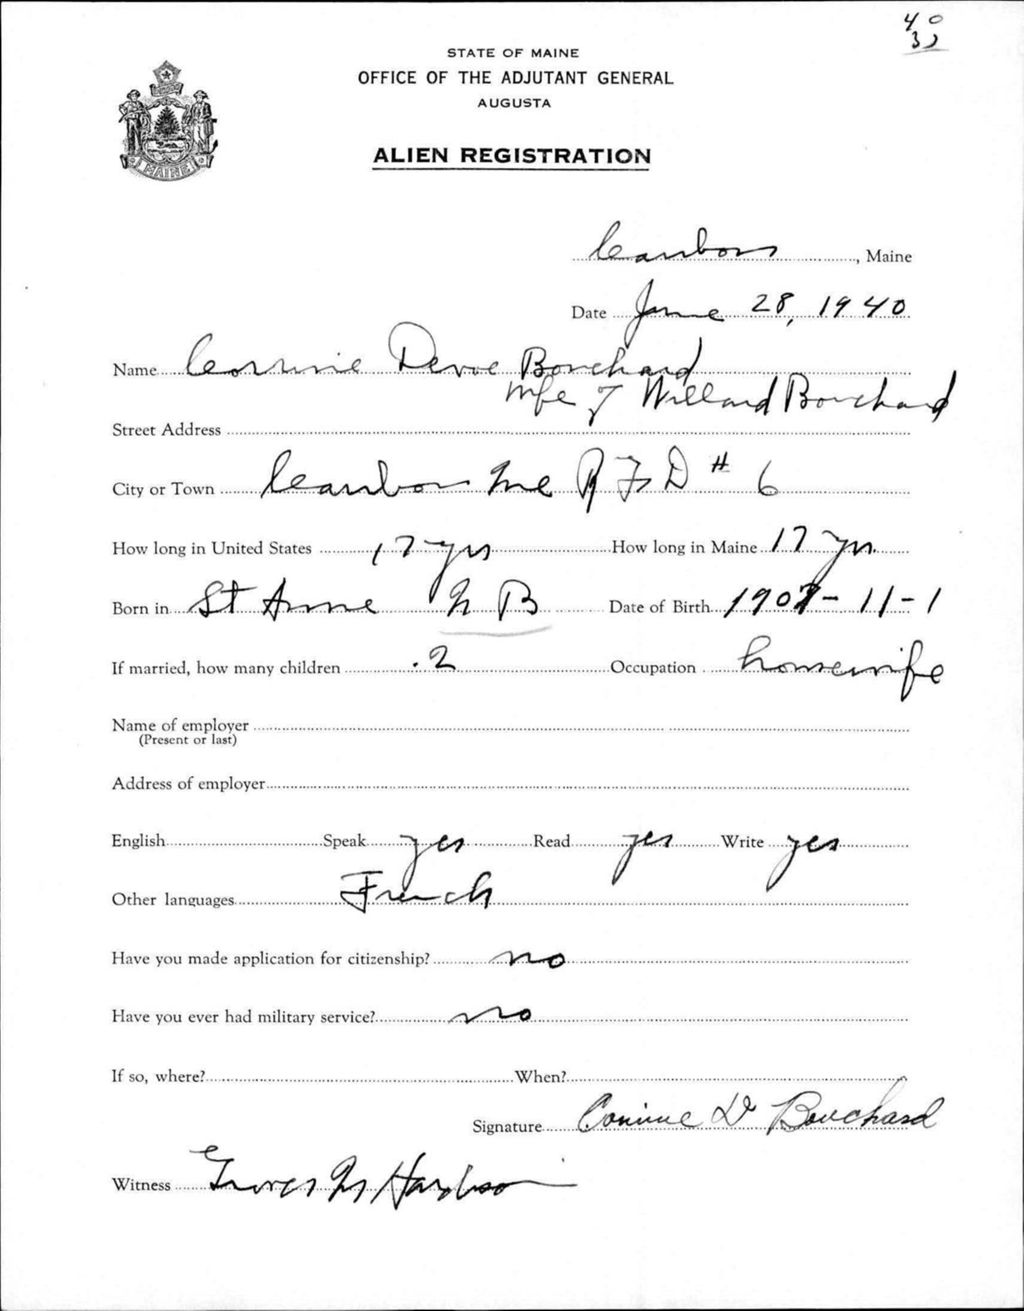 40
3
STATE OF MAINE
OFFICE OF THE ADJUTANT GENERAL
AUGUSTA
MAINE
ALIEN REGISTRATION
Caribou, Maine
Date June 28, 1940
Name Corrinie Devoe Bouchard
wife of Willard Bouchard
Street Address
City or Town Caribou Me R F D # 6
How long in United States 17 yrs How long in Maine 17 yrs
Born in St Anne N B Date of Birth 1907-11-1
If married, how many children 2 Occupation housewife
Name of employer
(Present or last)
Address of employer
English Speak yes Read yes Write yes
Other languages French
Have you made application for citizenship? no
Have you ever had military service? no
If so, where? When?
Signature Corinne D Bouchard
Witness